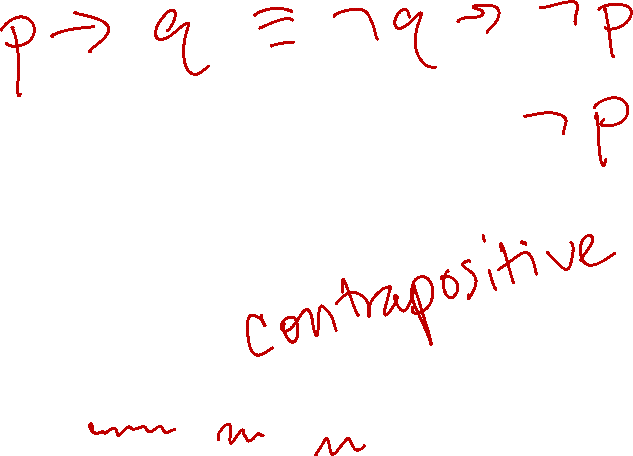 p → q ≡ ¬q → ¬p
¬p
contrapositive